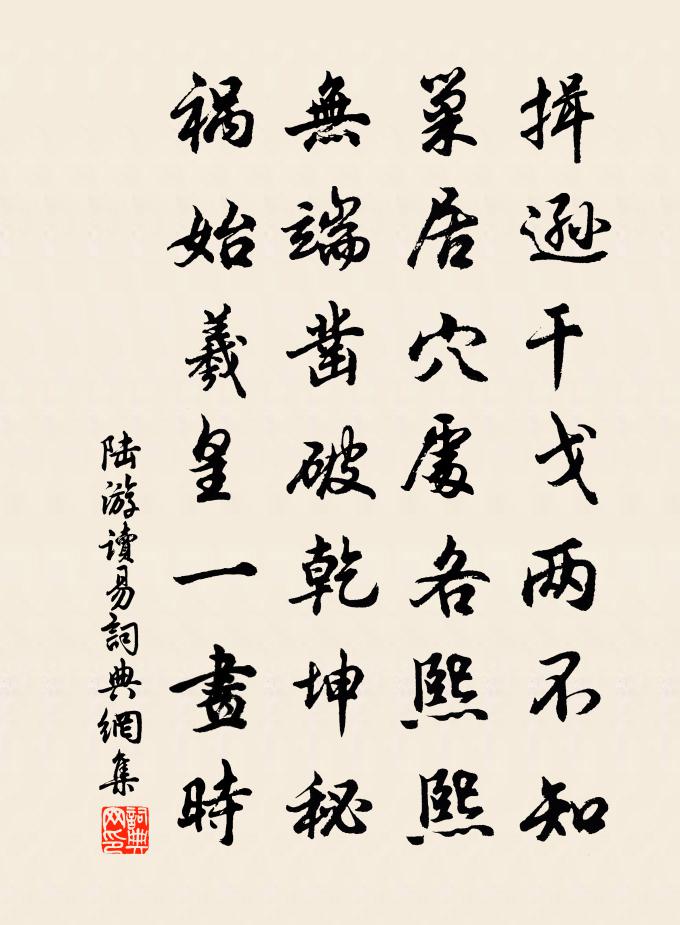 揖遜干戈两不知
巢居穴處各熙熙
無端凿破乾坤秘
祸始羲皇一畫時
陆游读易詞典網集
詞典
网印